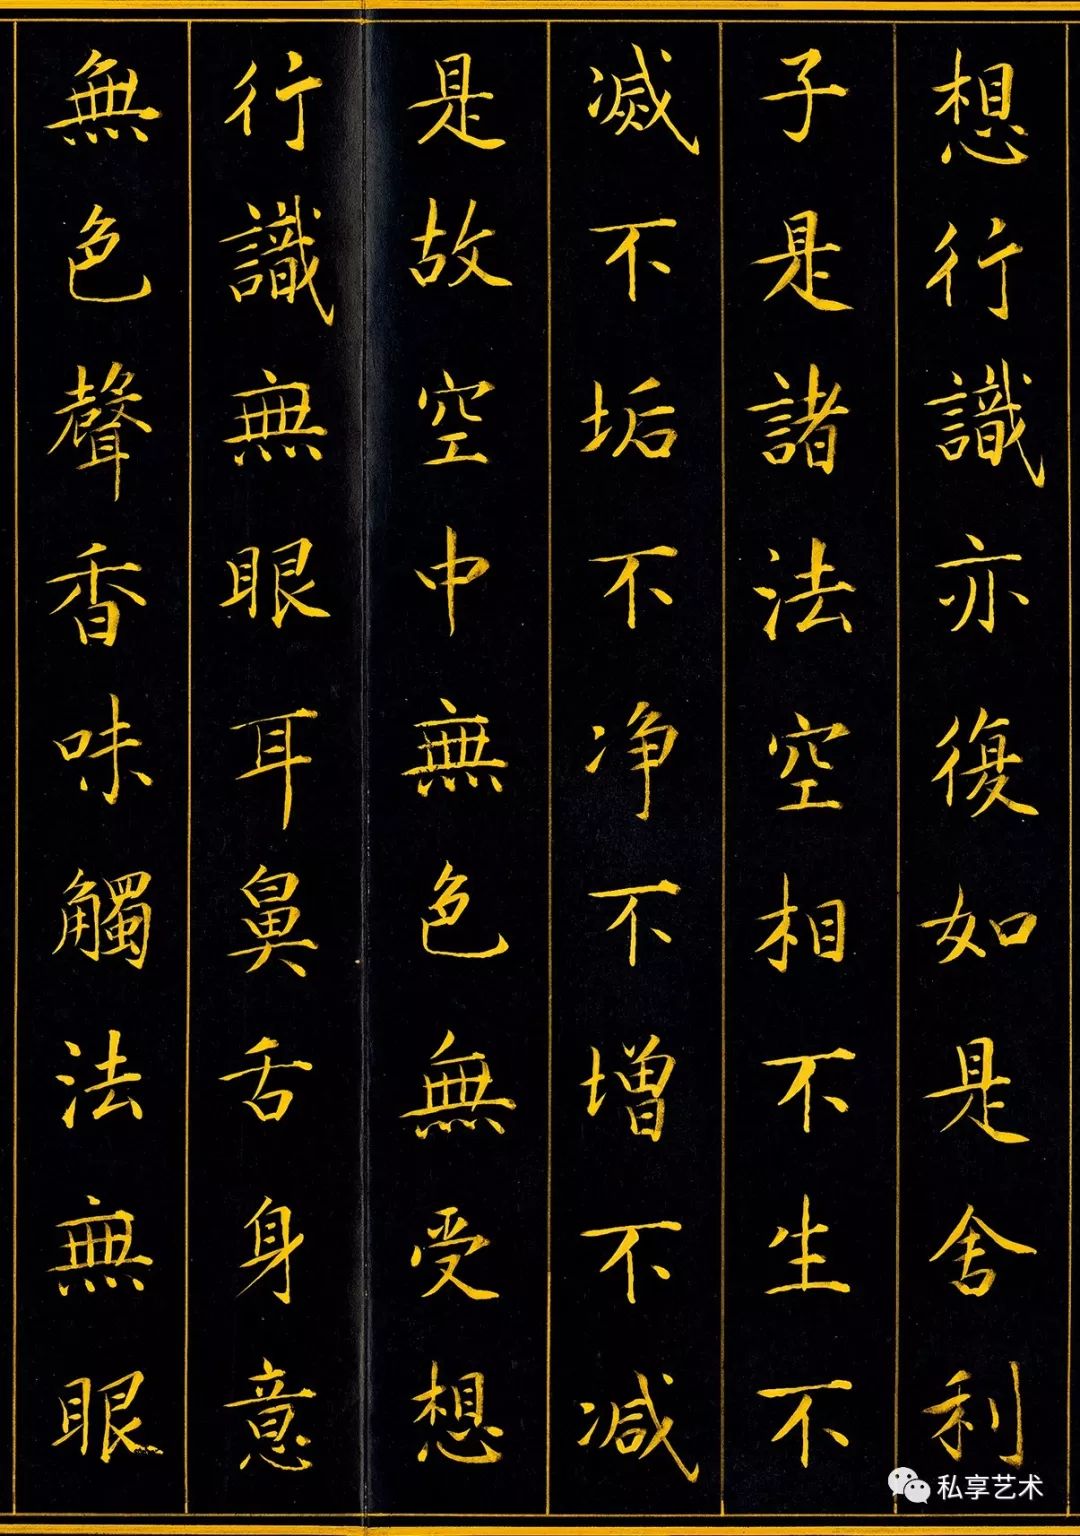 想行識亦復如是舍利
子是諸法空相不生不
滅不垢不净不增不減
是故空中無色無受想
行識無眼耳鼻舌身意
無色聲香味觸法無眼
私享艺术